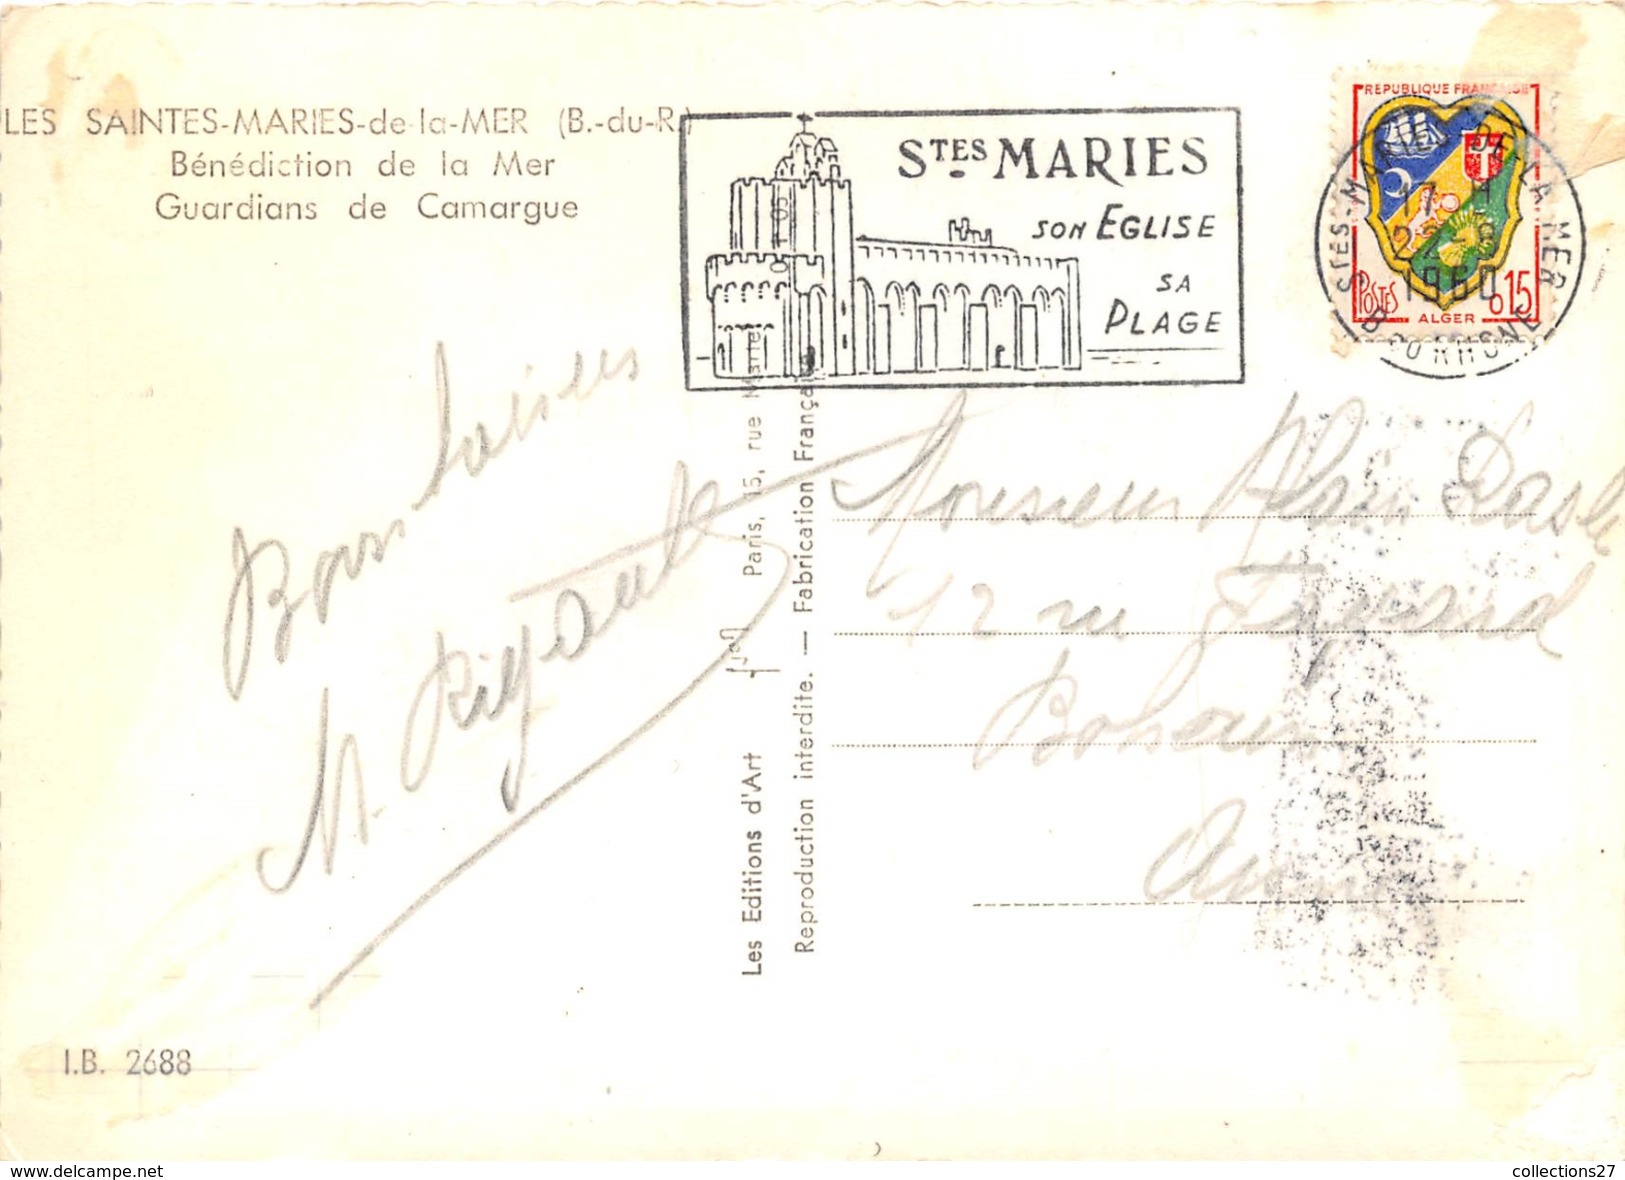 LES SAINTES-MARIES-de-la-MER (B.-du-R.)
Bénédiction de la Mer
Guardians de Camargue
STES MARIES
SON EGLISE
SA
PLAGE
REPUBLIQUE FRANÇAISE
POSTES
0,15
ALGER
STES-MARIES-DE-LA-MER
17 H
22-9
1960
B. DU RHONE
Bons baisers
M. Rigault
Monsieur Alain
12 rue Favard
Les Editions d'Art
Paris, 15, rue
Reproduction interdite. — Fabrication Française
I.B. 2688
www.delcampe.net
collections27